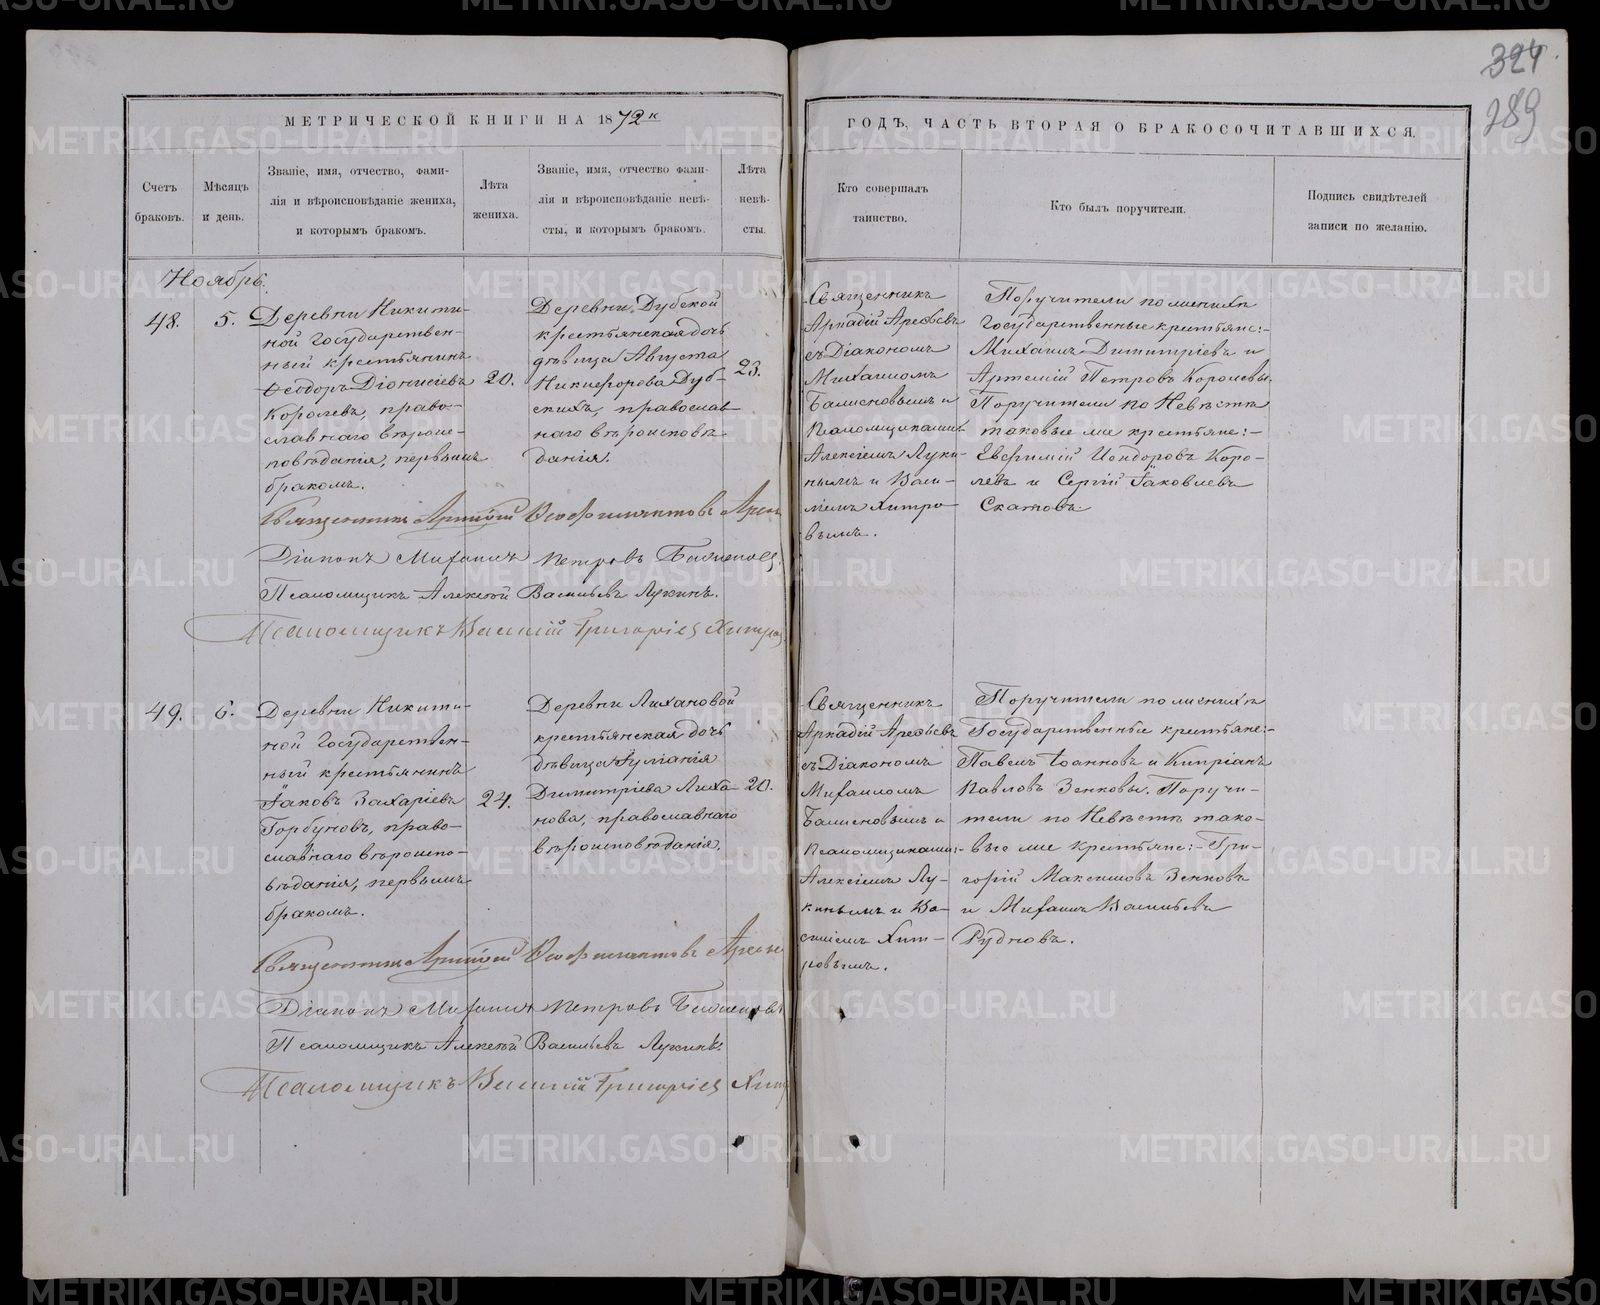 324
289
МЕТРИЧЕСКОЙ КНИГИ НА 1872й
ГОДЪ, ЧАСТЬ ВТОРАЯ О БРАКОСОЧИТАВШИХСЯ.
Счетъ
браковъ.
Мѣсяцъ
и день.
Званіе, имя, отчество, фами-
лія и вѣроисповѣданіе жениха,
и которымъ бракомъ.
Лѣта
жениха.
Званіе, имя, отчество фами-
лія и вѣроисповѣданіе невѣ-
сты, и которымъ бракомъ.
Лѣта
невѣ-
сты.
Кто совершалъ
таинство.
Кто былъ поручители.
Подпись свидѣтелей
записи по желанію.
Ноябрь.
48.
5.
Деревни Никити-
ной Государствен-
ный крестьянинъ
Ѳеодоръ Діонисіевъ
Королевъ, право-
славнаго вѣроис-
повѣданія, первымъ
бракомъ.
20.
Деревни Дубской
крестьянская дочь
дѣвица Августа
Никифорова Дуб-
скихъ, православ-
наго вѣроисповѣ-
данія.
23.
Священникъ
Аркадій Арефьевъ
съ Діакономъ
Михаиломъ
и
Псаломщиками:
Алексіемъ Луки-
нымъ и Васи-
ліемъ Хитро-
вымъ.
Поручители по женихѣ
Государственные крестьяне:-
Михаилъ Димитріевъ и
Артемій Петровъ Королевы.
Поручители по Невѣстѣ
таковые же крестьяне:-
Евфимій Исидоровъ Коро-
левъ и Сергій Іаковлевъ
Скатовъ.
Священникъ Аркадій Ѳеофилактовъ Арефь
Діаконъ Михаилъ Петровъ
Псаломщикъ Алексѣй Васильевъ Лукинъ.
Псаломщикъ Василій Григорьевъ Хитров
49.
6.
Деревни Никити-
ной Государствен-
ный крестьянинъ
Іаковъ Захаріевъ
Горбуновъ, право-
славнаго вѣроиспо-
вѣданія, первымъ
бракомъ.
24.
Деревни Лихановой
крестьянская дочь
дѣвица Іуліанія
Димитріева Лиха-
нова, православнаго
вѣроисповѣданія.
20.
Священникъ
Аркадій Арефьевъ
съ Діакономъ
Михаиломъ
и
Псаломщиками:-
Алексіемъ Лу-
кинымъ и Ва-
силіемъ Хит-
ровымъ.
Поручители по женихѣ
Государственные крестьяне:-
Павелъ Іоанновъ и Кипріанъ
Павловъ Зенковы. Поручи-
тели по Невѣстѣ тако-
вые же крестьяне:- Гри-
горій Максимовъ Зенковъ
и Михаилъ Васильевъ
Рудновъ.
Священникъ Аркадій Ѳеофилактовъ Арефье
Діаконъ Михаилъ Петровъ
Псаломщикъ Алексѣй Васильевъ Лукинъ.
Псаломщикъ Василій Григорьевъ Хит
METRIKI.GASO-URAL.RU